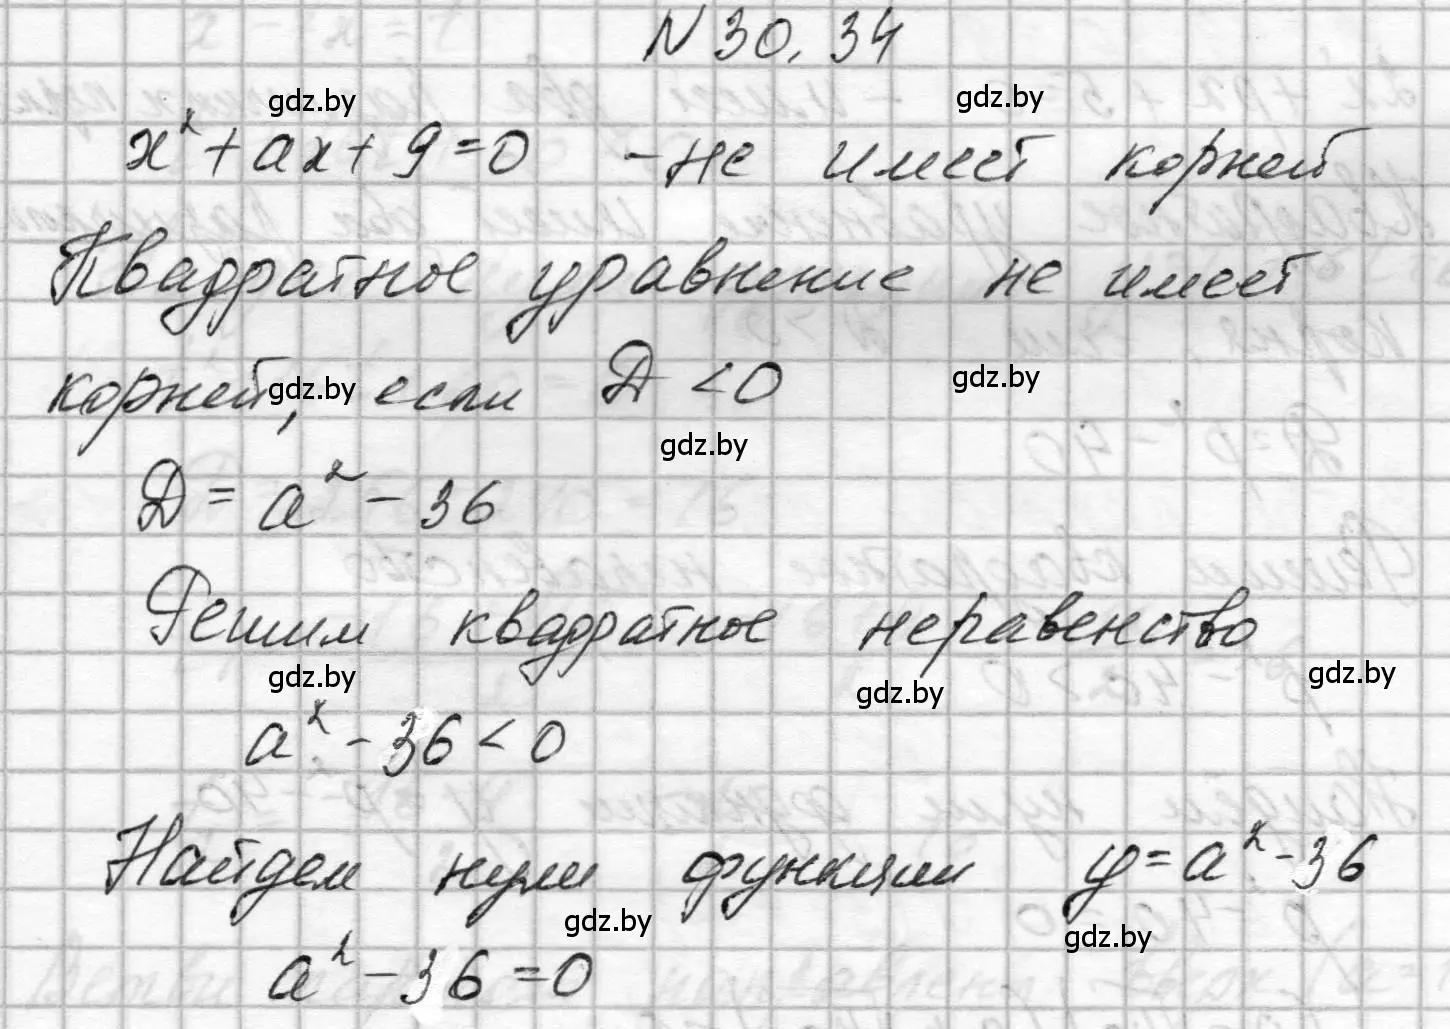 N 30.34
gdz.by
gdz.by
x² + ax + 9 = 0 - не имеет корней
Квадратное уравнение не имеет
корней, если Д < 0
gdz.by
gdz.by
gdz.by
Д = a² - 36
Решим квадратное неравенство
gdz.by
gdz.by
gdz.by
a² - 36 < 0
Найдем нули функции y = a² - 36
gdz.by
gdz.by
a² - 36 = 0